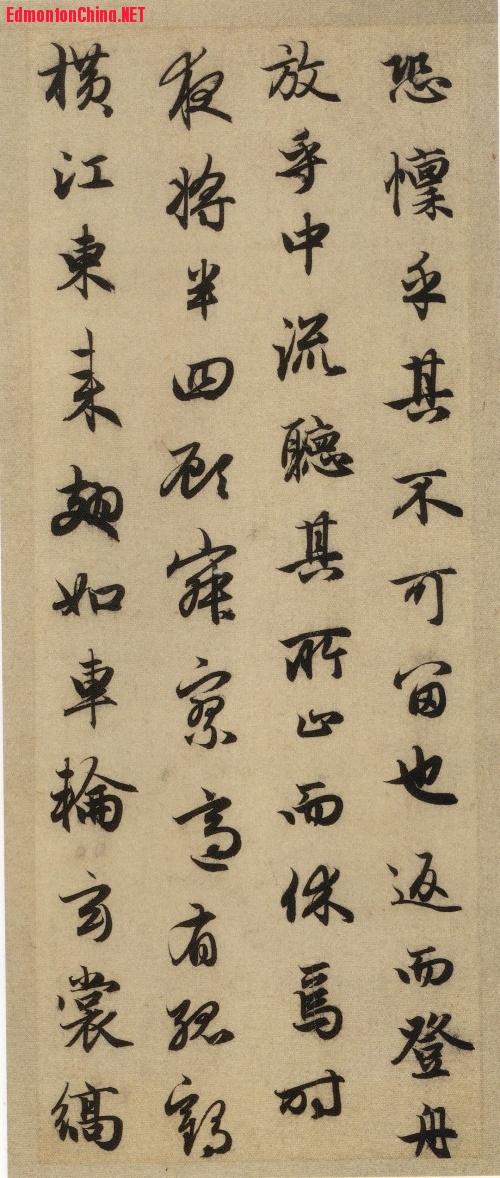 EdmontonChina.NET
恐懍乎其不可留也返而登舟
放乎中流聽其所止而休焉时
夜将半四顾寂寥適有孤鶴
横江東来翅如車輪玄裳縞